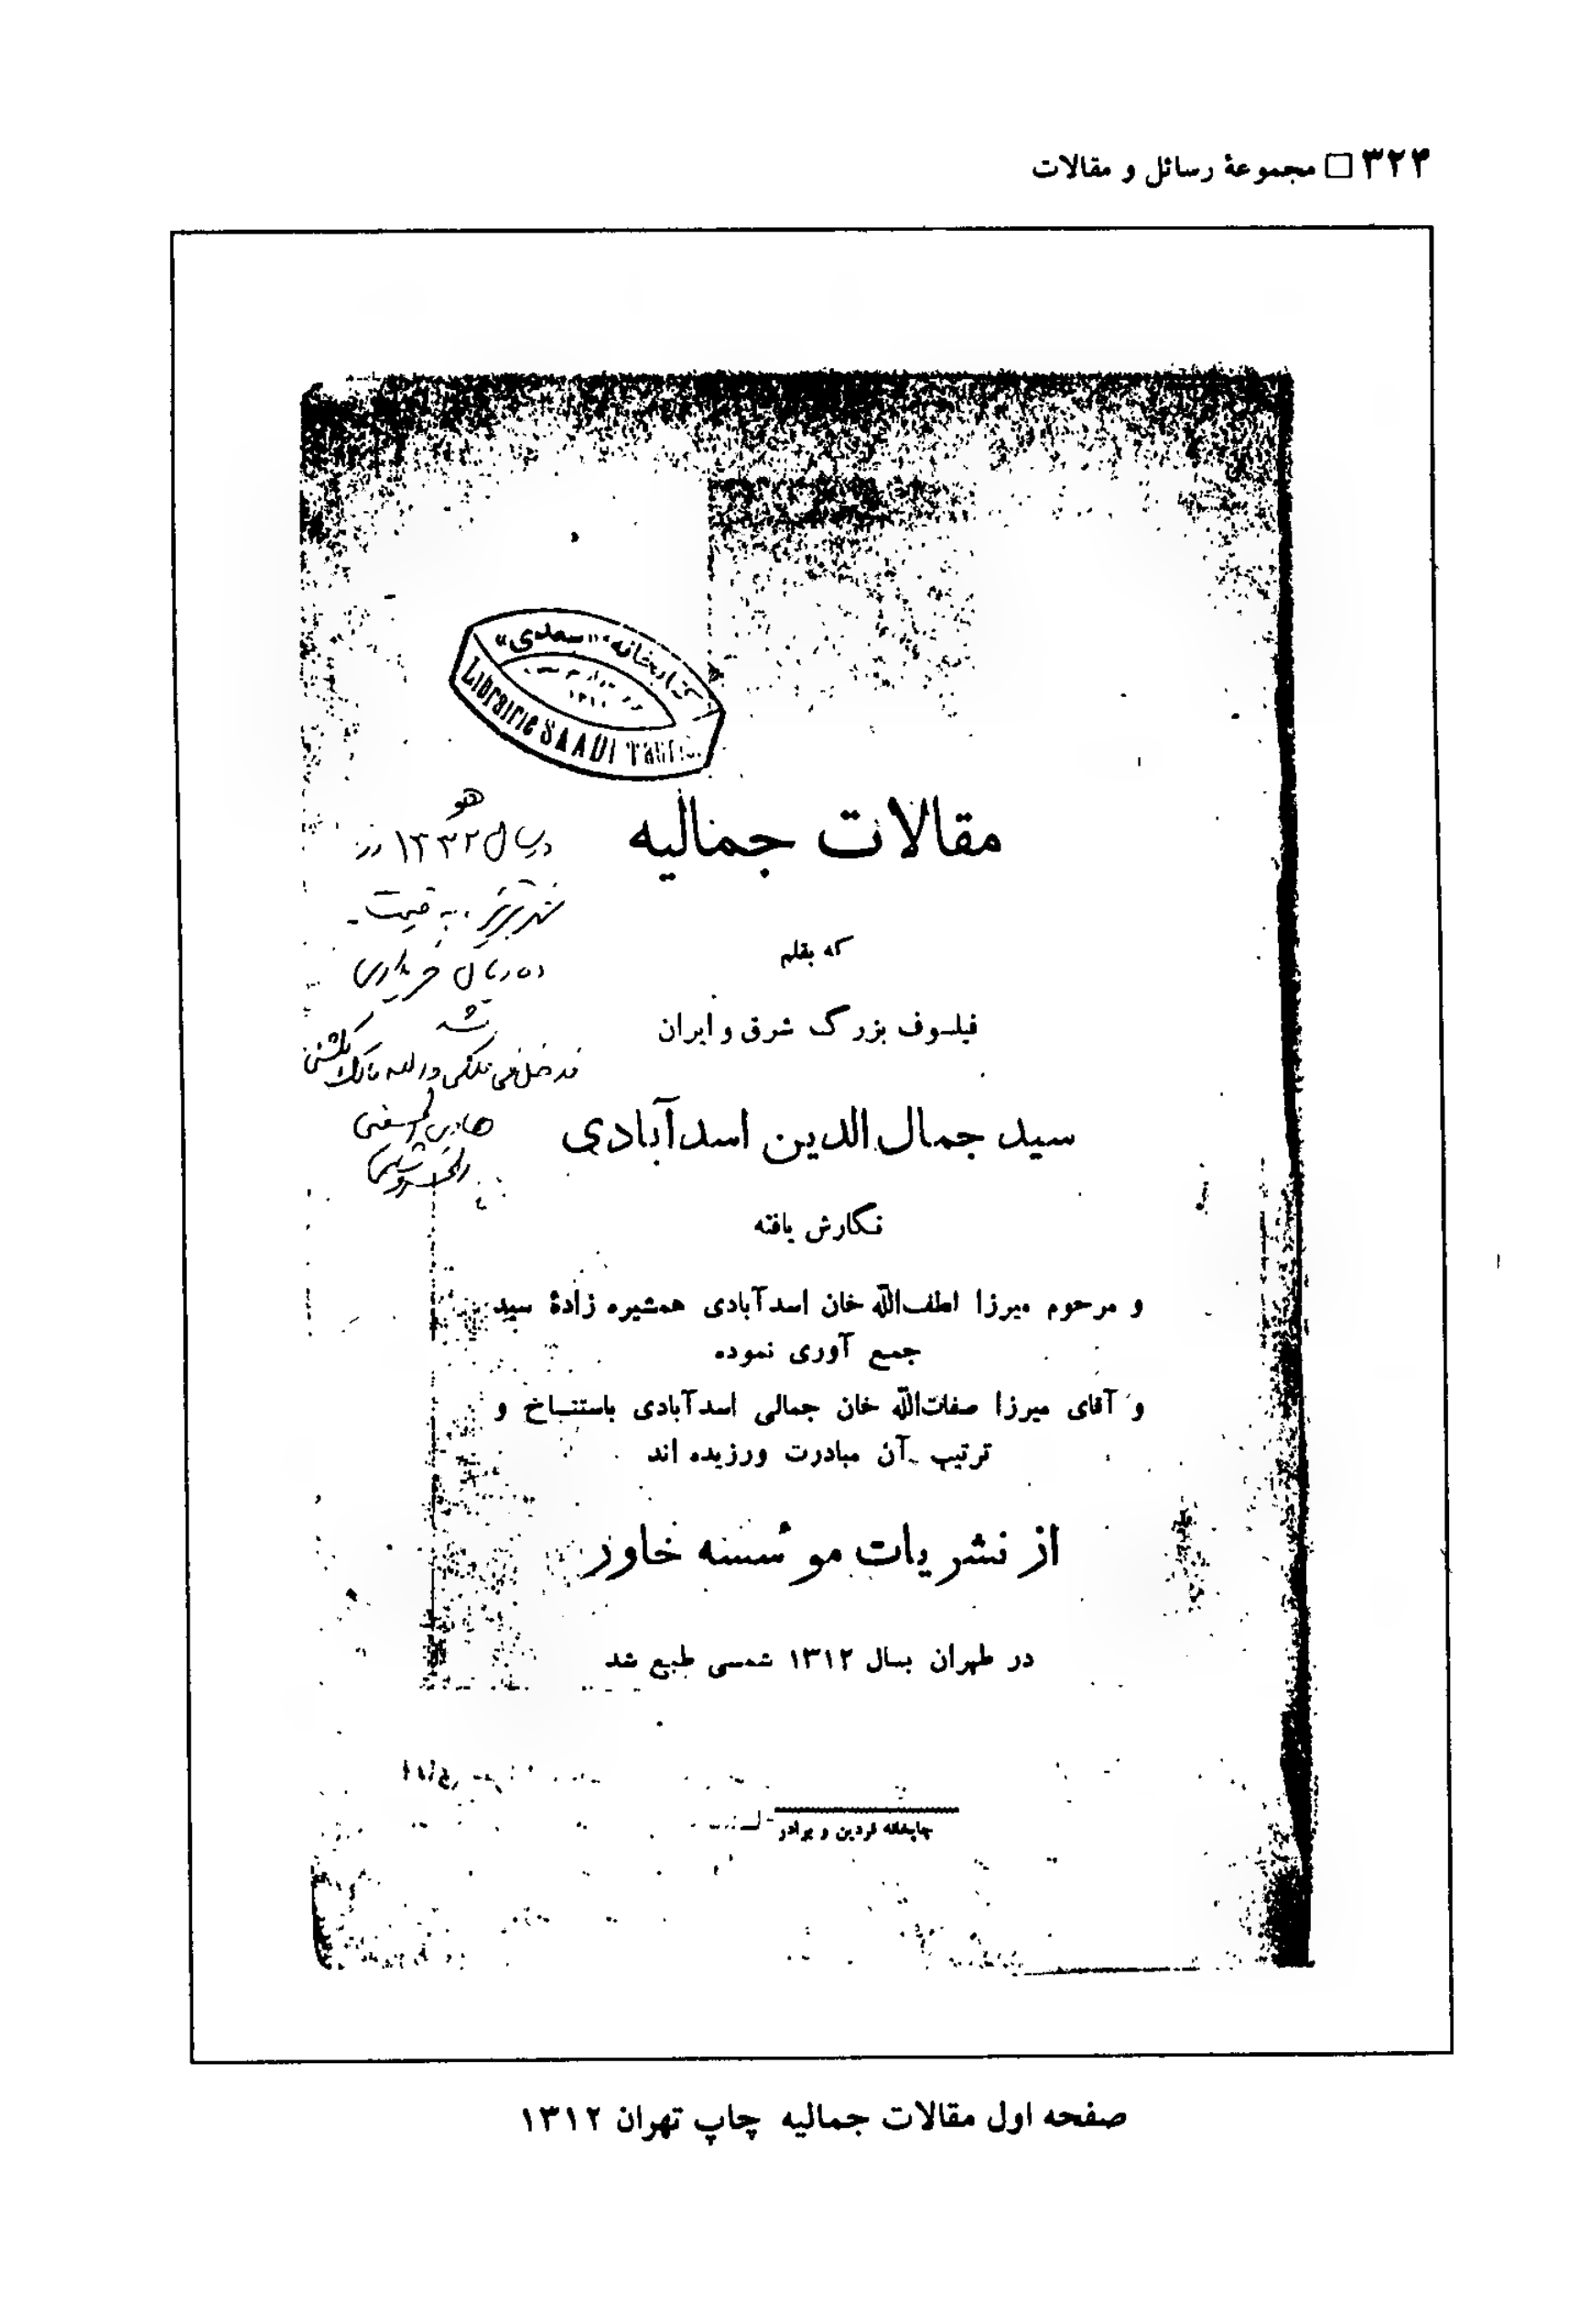 ۳۲۴ □ مجموعهٔ رسائل و مقالات
کتابخانه «سعدی»
Librairie SAADI
مقالات جمالیه
که بقلم
فیلسوف بزرگ شرق و ایران
سید جمال الدین اسدآبادی
نگارش یافته
و مرحوم میرزا لطف‌الله خان اسدآبادی همشیره زادهٔ سید
جمع آوری نموده
و آقای میرزا صفات‌الله خان جمالی اسدآبادی باستنساخ و
ترتیب آن مبادرت ورزیده اند
از نشریات موسسه خاور
در طهران بسال ۱۳۱۲ شمسی طبع شد
چاپخانه فردین و برادر
هو
در سال ۱۳۳۲ در
شهر تبریز به قیمت
ده ریال خریداری
شد
صفحه اول مقالات جمالیه چاپ تهران ۱۳۱۲